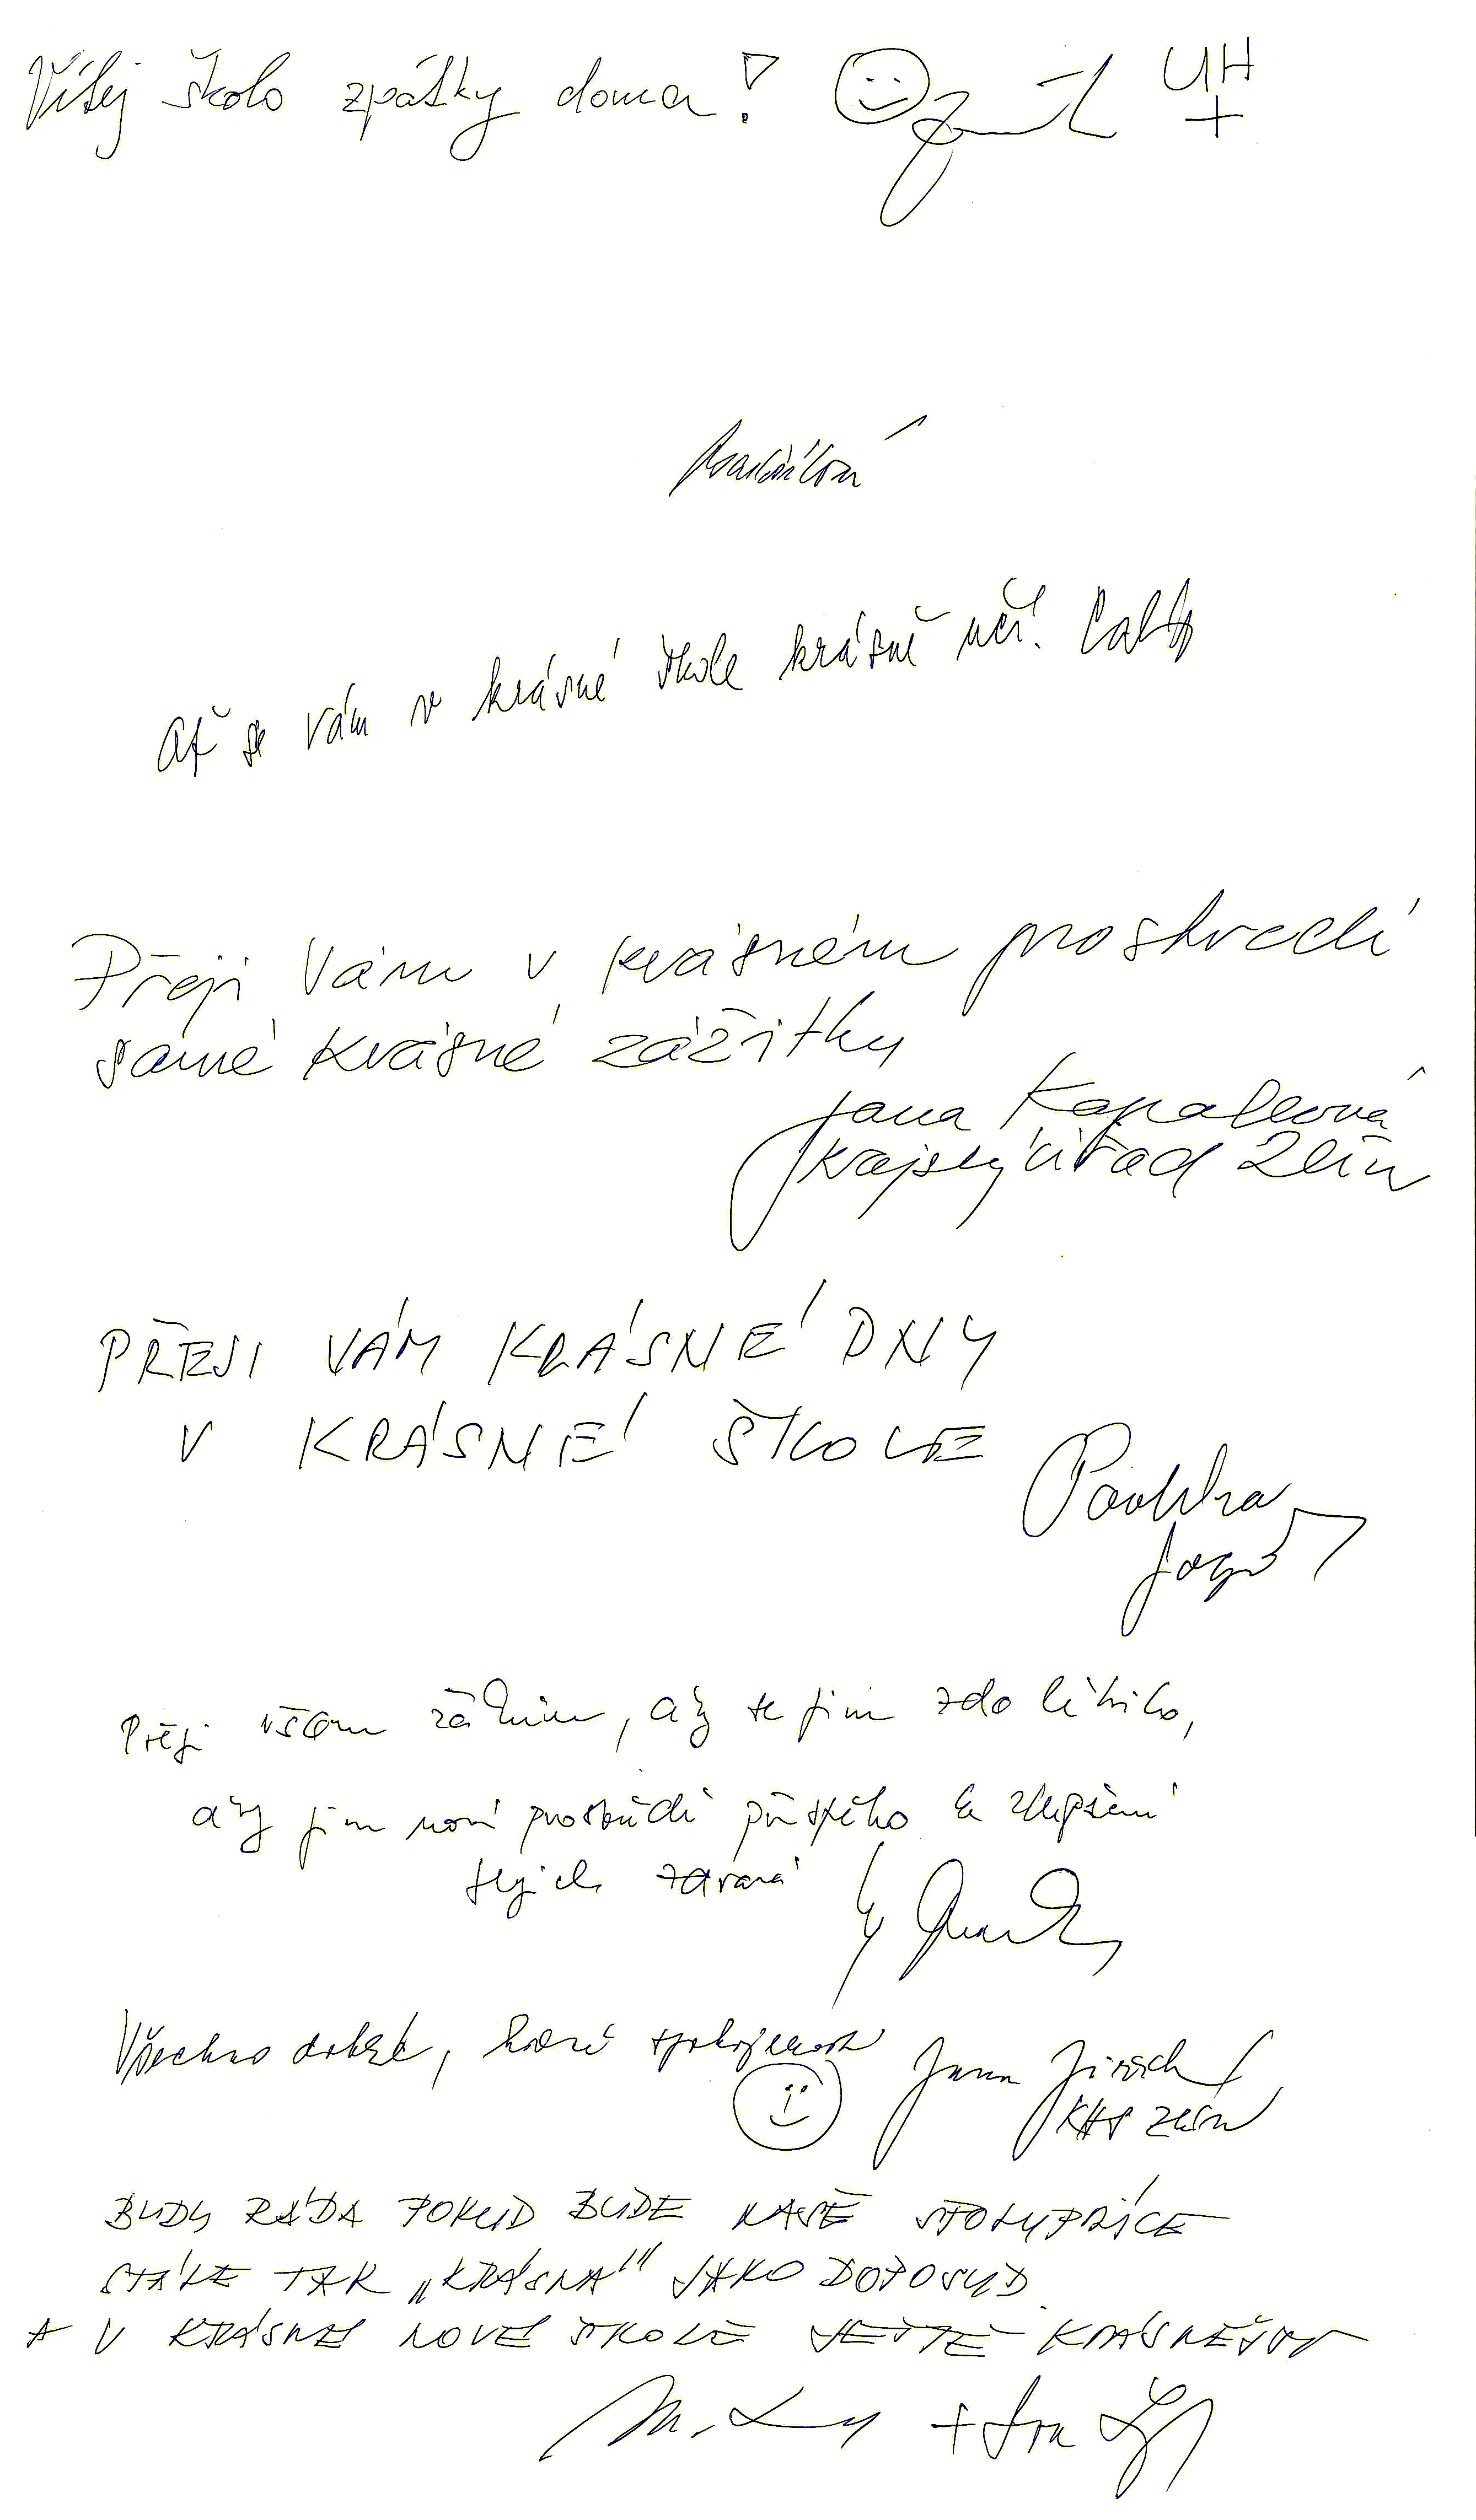 Vítej školo zpátky doma! UH
+
Ať se vám v krásné škole krásně učí.
Přeji Vám v krásném prostředí
samé krásné zážitky
Jana
Krajský úřad Zlín
PŘEJI VÁM KRÁSNÉ DNY
V KRÁSNÉ ŠKOLE
Přeji všem žákům, aby se jim zde líbilo,
aby jim nové prostředí přispělo ke zlepšení
jejich zdraví
Všechno dobré, hodně spokojenosti Jana
KHS Zlín
BUDU RÁDA POKUD BUDE NAŠE SPOLUPRÁCE
STÁLE TAK „KRÁSNÁ" JAKO DOPOSUD
A V KRÁSNÉ NOVÉ ŠKOLE JEŠTĚ KRÁSNĚJŠÍ